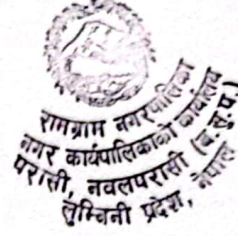 रामग्राम नगरपालिका
नगर कार्यपालिकाको कार्यालय
परासी, नवलपरासी (ब.सु.प.)
लुम्बिनी प्रदेश, नेपाल